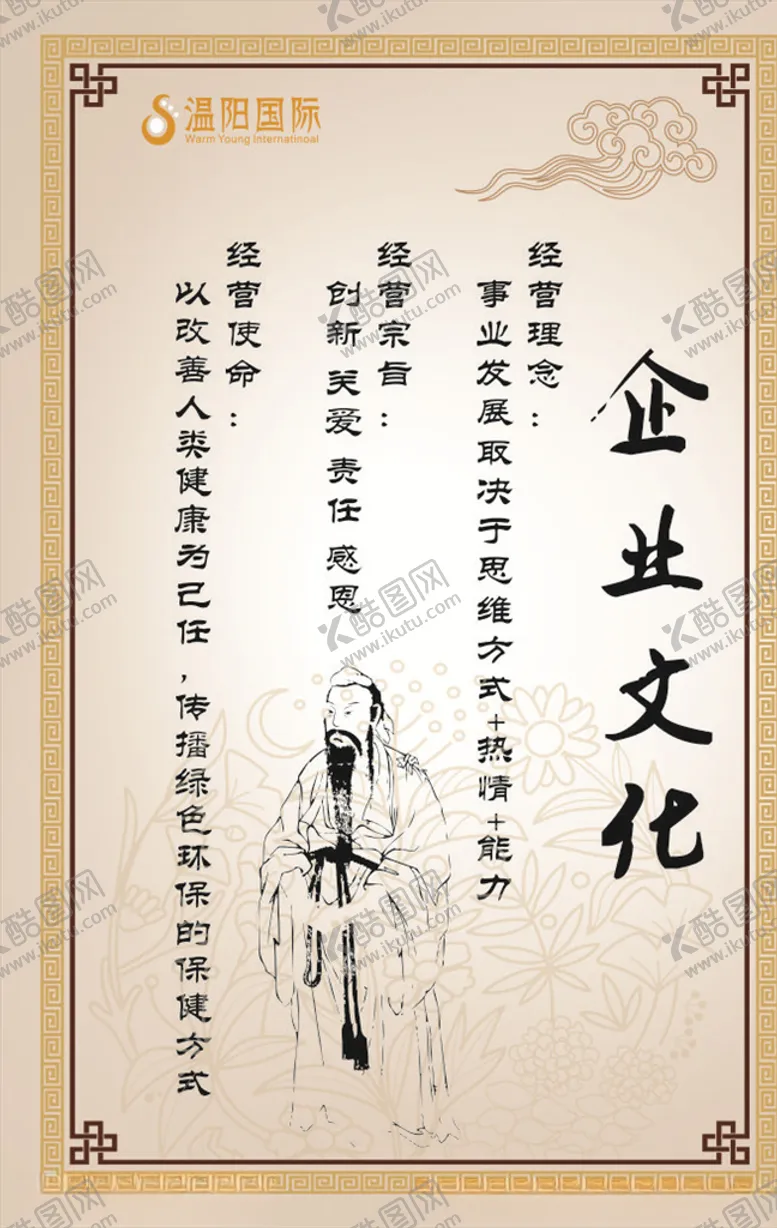 温阳国际
Warm Young Internatinoal
企业文化
经营理念：
事业发展取决于思维方式+热情+能力
经营宗旨：
创新 关爱 责任 感恩
经营使命：
以改善人类健康为己任，传播绿色环保的保健方式
酷图网
www.ikutu.com